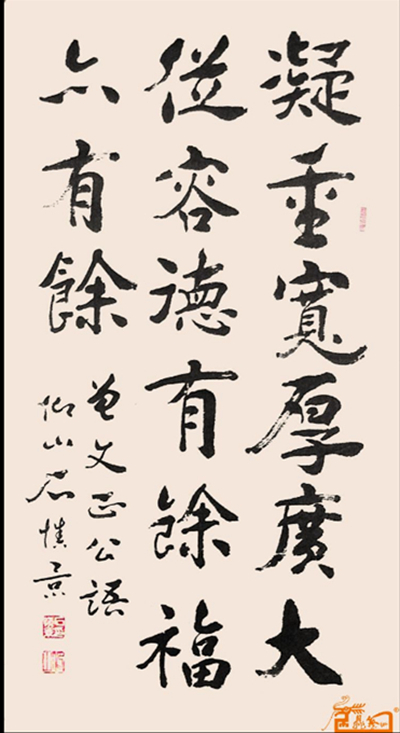 凝重寬厚廣大
從容德有餘福
亦有餘
曾文正公語
仰山石慎景